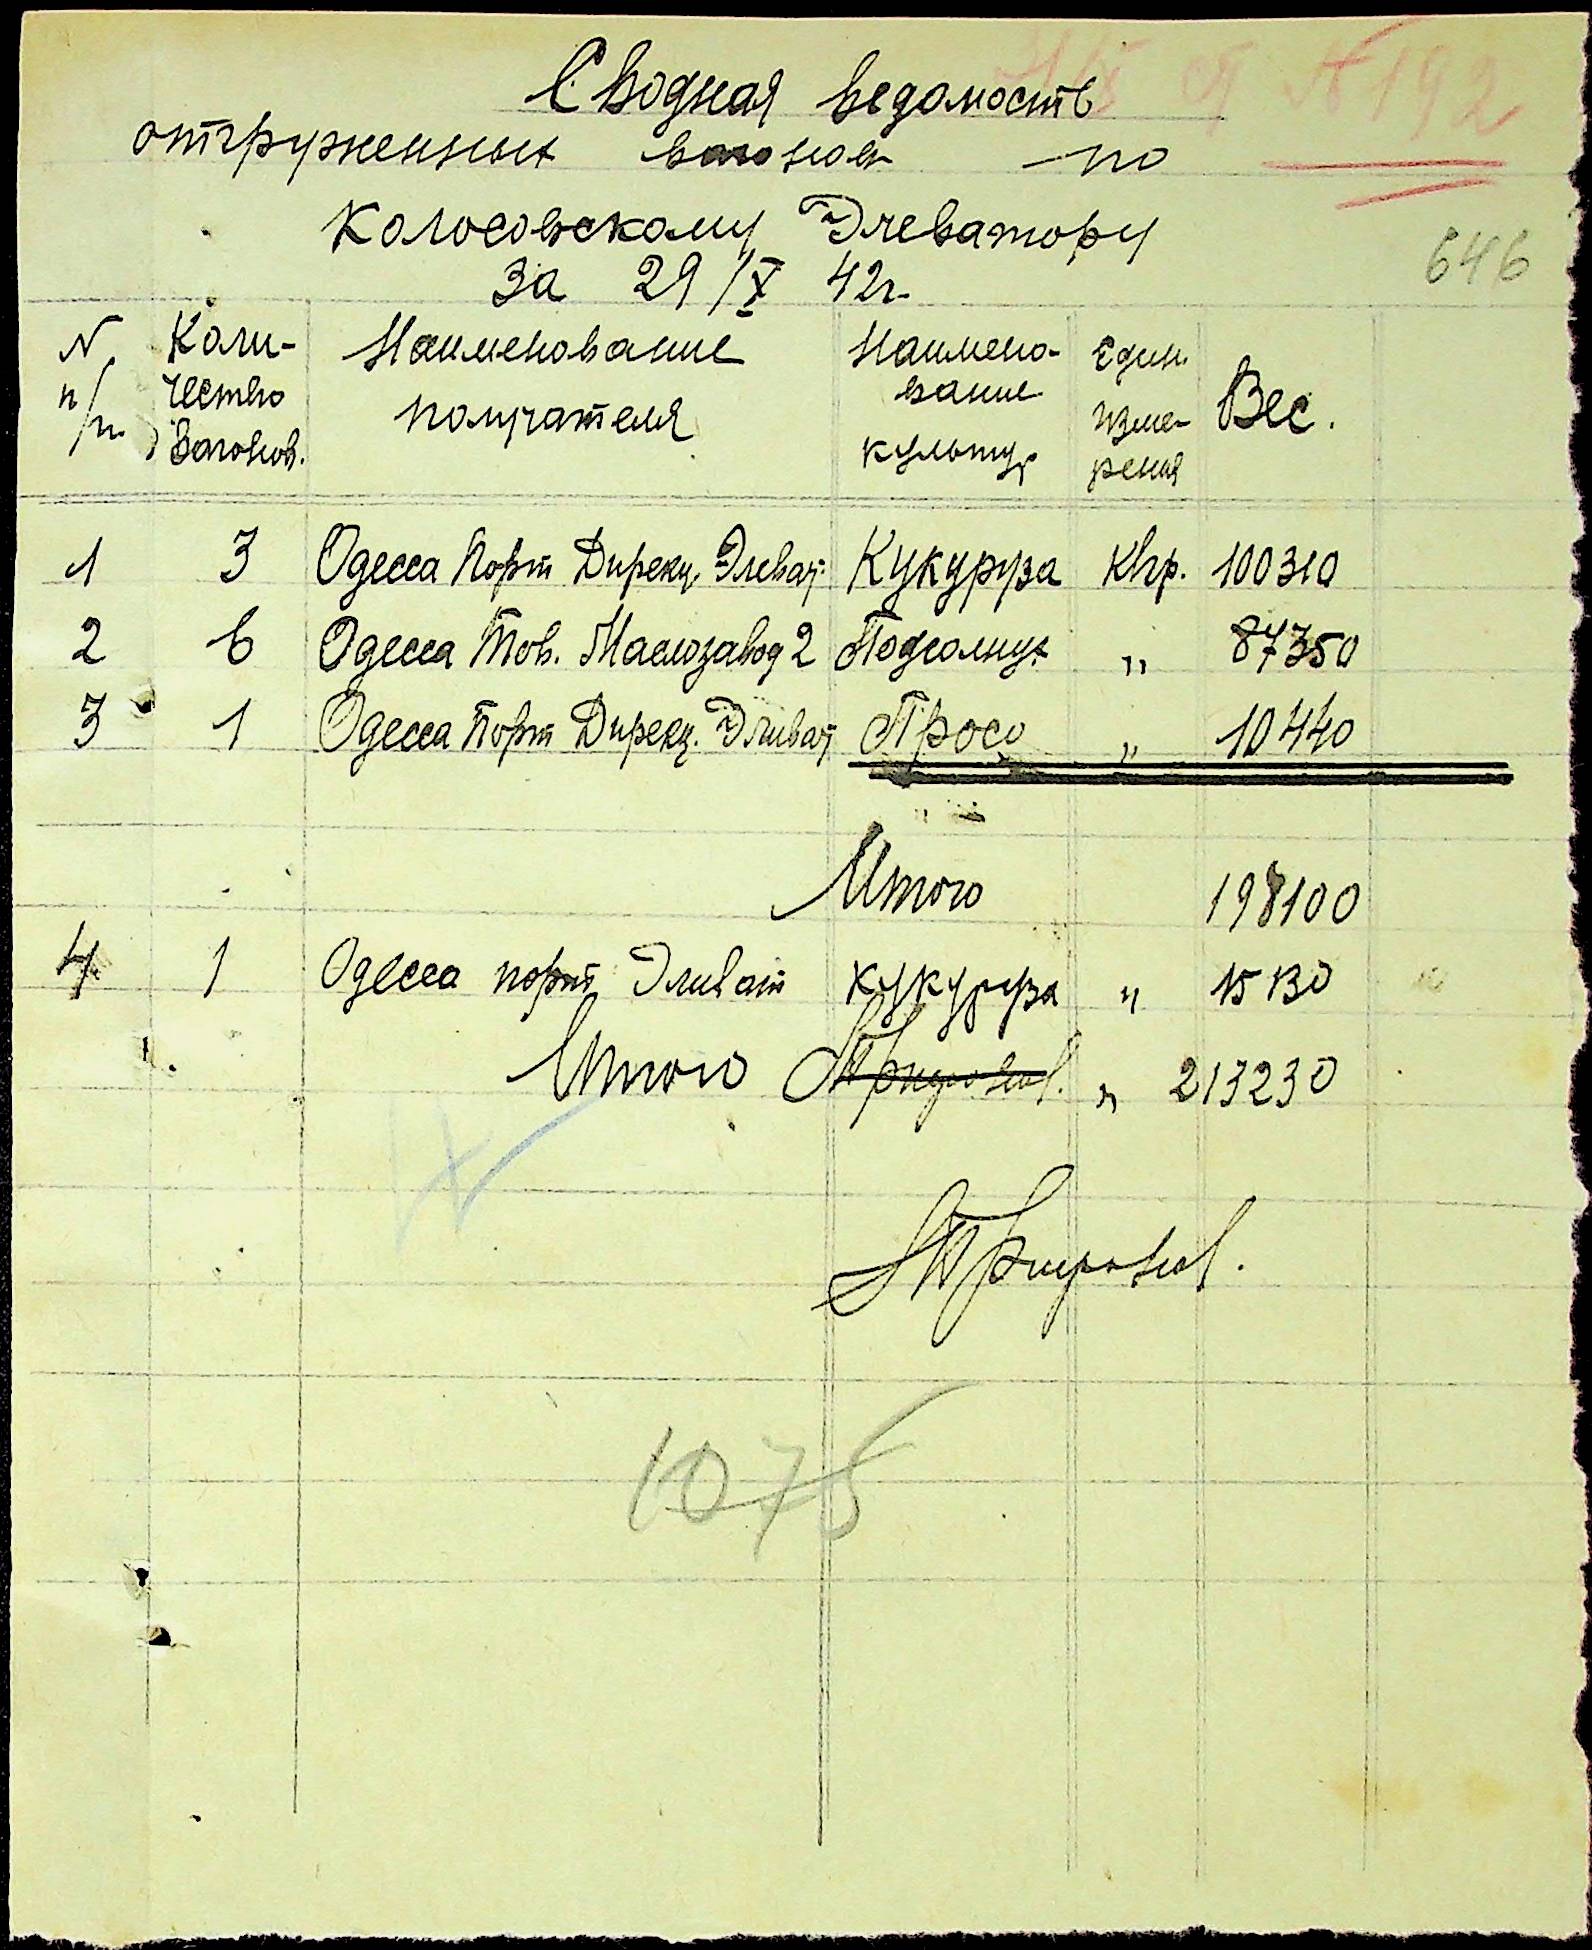 192
Сводная ведомость
отгруженных вагонов по
Колосовскому Элеватору
за 29/X 42г.
646
N п/п. Коли-чество вагонов. Наименование получателя Наимено-вание культур Един. Изме-рения Вес.
1 3 Одесса Порт Дирекц. Элеват. Кукуруза Кгр. 100310
2 6 Одесса Тов. Маслозавод 2 Подсолнух " 87350
3 1 Одесса Порт Дирекц. Эливат Просо " 10440
Итого 198100
4 1 Одесса порт Эливат кукуруза " 15130
Итого " 213230
1075